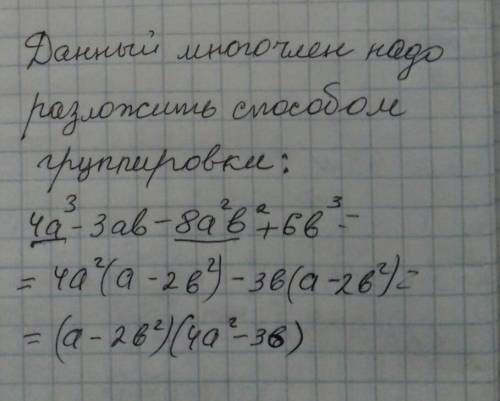 Данный многочлен надо
разложить способом
группировки:
4a³ - 3ab - 8a²b² + 6b³ =
= 4a²(a - 2b²) - 3b(a - 2b²) =
= (a - 2b²)(4a² - 3b)